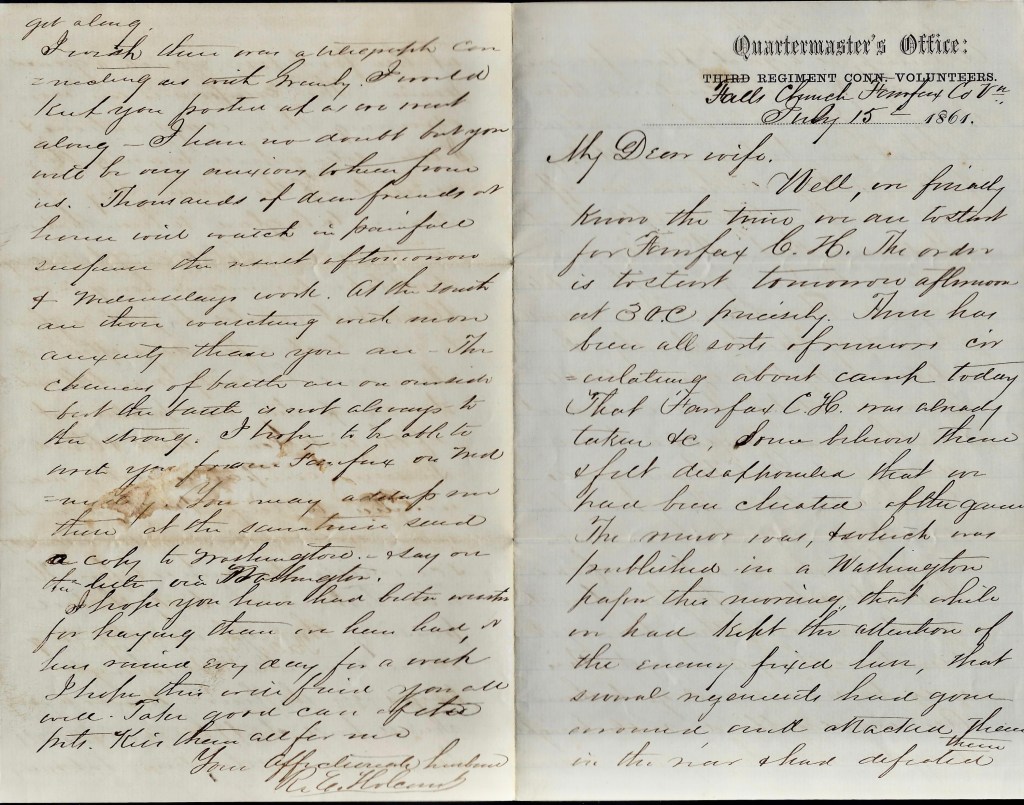 Quartermaster's Office:
THIRD REGIMENT CONN. VOLUNTEERS.
Falls Church Fairfax Co Va
July 15 1861.
My Dear wife.
Well, we finally
know the time we are to start
for Fairfax C. H. The order
is to start tomorrow afternoon
at 3 O.C precisely. There has
been all sorts of rumors cir
=culating about camp today
That Fairfax C. H. was already
taken &c, Some believe them
& felt disappointed that we
had been cheated of the game
The rumor was, & which was
published in a Washington
paper this morning, that while
we had kept the attention of
the enemy fixed here, that
several regiments had gone
around and attacked them
in the rear & had defeated
them
get along.
I wish there was a telegraph con
=necting us with Granby. I would
keep you posted up as we went
along - I have no doubt but you
will be very anxious to hear from
us. Thousands of dear friends at
home will watch in painfull
suspense the result of tomorrow
& Wednesdays work. At the south
are those watching with more
anxiety than you are - The
chances of battle are on our side
but the battle is not always to
the strong. I hope to be able to
write you from Fairfax on Wed
You may address me
there at the same time send
a copy to Washington. & say on
the letter via Washington.
I hope you have had better weather
for haying than we have had, it
has rained every day for a week
I hope this will find you all
well. Take good care of the
pets. Kiss them all for me
Your affectionate husband
R. E. Holcomb